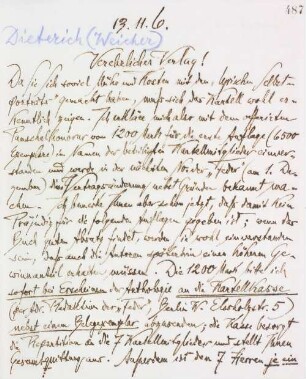 487
13.11.6.
Dieterich (Weicher)
Verehrlicher Verlag!
Da Sie sich soviel Mühe und Kosten mit den "lyrischen Selbst-
portraits" gemacht haben, muß sich das Kartell wohl er-
kenntlich zeigen. Ich erkläre mich also mit dem reduzirten
Pauschalhonorar von 1200 Mark für die erste Auflage (6500
Exemplare) im Namen der beteiligten Kartellmitglieder einver-
standen und werde in der nächsten No. der "Feder" (am 1. De-
zember) die Vertragsänderung nebst Gründen bekannt ma-
chen. Ich bemerke Ihnen aber schon jetzt, daß damit kein
Präjudiz für die folgenden Auflagen gegeben ist; wenn das
Buch guten Absatz findet, werden Sie wohl einverstanden
sein, daß auch die Autoren späterhin einen höheren Ge-
winnanteil erhalten müssen. Die 1200 Mark bitte ich
sofort bei Erscheinen der Anthologie an die Kartellkasse
(per Adr. Redaktion der "Feder", Berlin W. Elsholzstr. 5)
nebst einem Belegexemplar abzusenden; die Kasse besorgt
die Repartition an die 7 Kartellmitglieder und stellt Ihnen
Gesamtquittung aus. Außerdem ist den 7 Herren je ein